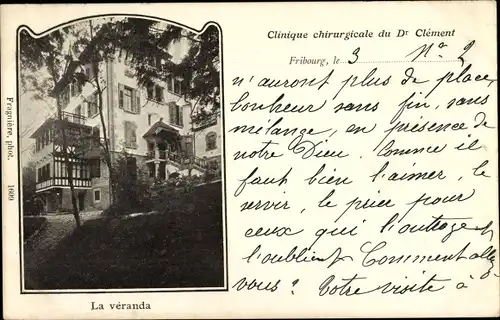 Clinique chirurgicale du Dr Clément
Fribourg, le 3
n'auront plus de place,
bonheur sans fin, sans
mélange, en présence de
notre Dieu. Comme il
faut bien l'aimer, le
servir, le prier pour
ceux qui l'outrage et
l'oublient! Comment allez
vous? Votre visite à
Fragnière, phot. 1609
La véranda